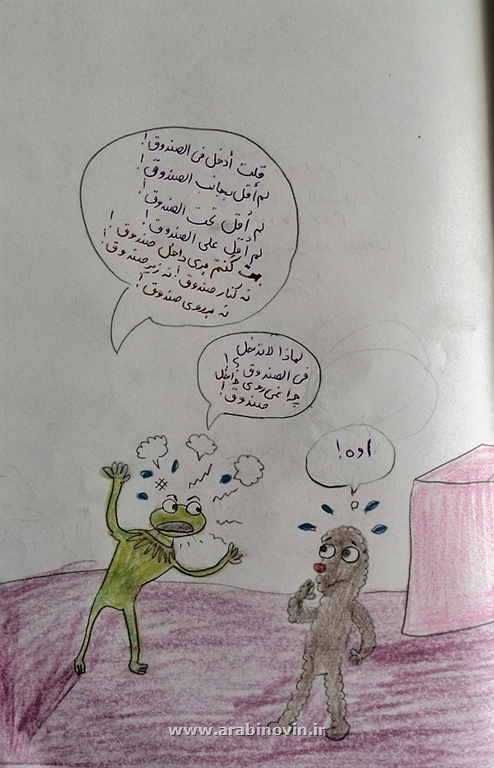 قلت أدخل في الصندوق!
لم أقل بجانب الصندوق!
لم أقل تحت الصندوق!
لم أقل على الصندوق!
گفتم بری داخل صندوق!
نه کنار صندوق! نه زیر صندوق!
نه بر روی صندوق!
لماذا لاتدخل
في الصندوق؟!
چرا نمی روی داخل
صندوق!
اوه!
www.arabinovin.ir